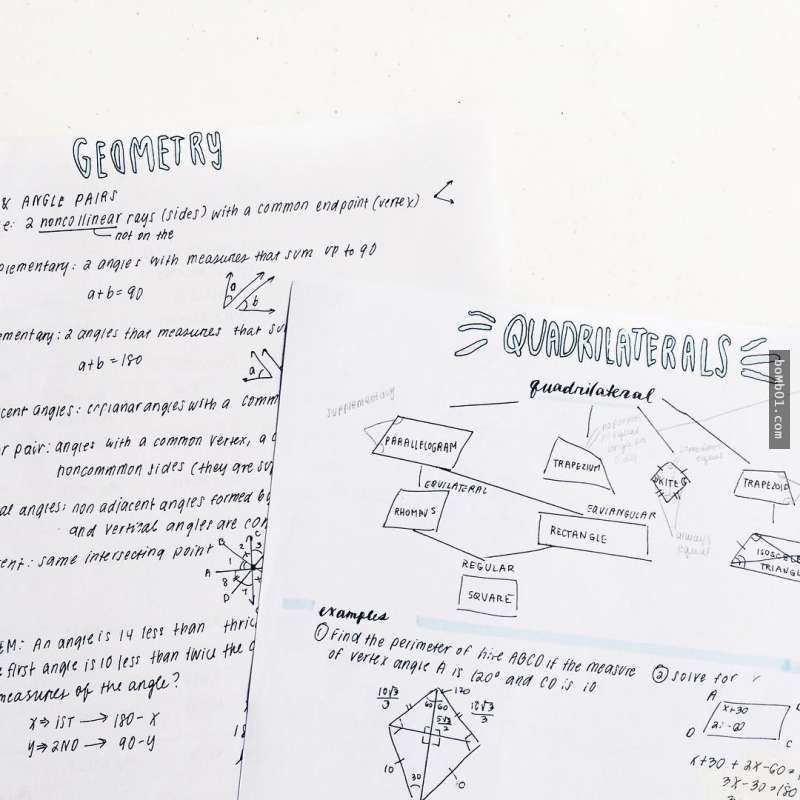 GEOMETRY
& ANGLE PAIRS
e: 2 noncollinear rays (sides) with a common endpoint (vertex)
not on the
plementary: 2 angles with measures that sum up to 90
a+b=90
a
b
ementary: 2 angles that measures that su
a+b=180
a
cent angles: coplanar angles with a comm
r pair: angles with a common vertex, a c
noncommon sides (they are su
al angles: non adjacent angles formed by
and vertical angles are con
ent: same intersecting point
A
B
C
D
1
2
3
8
7
EM: An angle is 14 less than thric
e first angle is 10 less than twice the c
measures of the angle?
x⇒ 1ST → 180-x
y⇒ 2ND → 90-y
QUADRILATERALS
quadrilateral
supplementary
PARALLELOGRAM
TRAPEZIUM
KITE
TRAPEZOID
EQUILATERAL
EQUIANGULAR
always
equal
RHOMBUS
RECTANGLE
ISOSCELE
TRIANGL
REGULAR
SQUARE
examples
① Find the perimeter of kite ABCD if the measure
of vertex angle A is 120° and CD is 10
② solve for
10√3
3
120
60 60
10√3
3
5√3
3
10
30
10
A
x+30
2x-60
D
C
x+30 + 2x-60 =
3x-30=180
bomb01.com